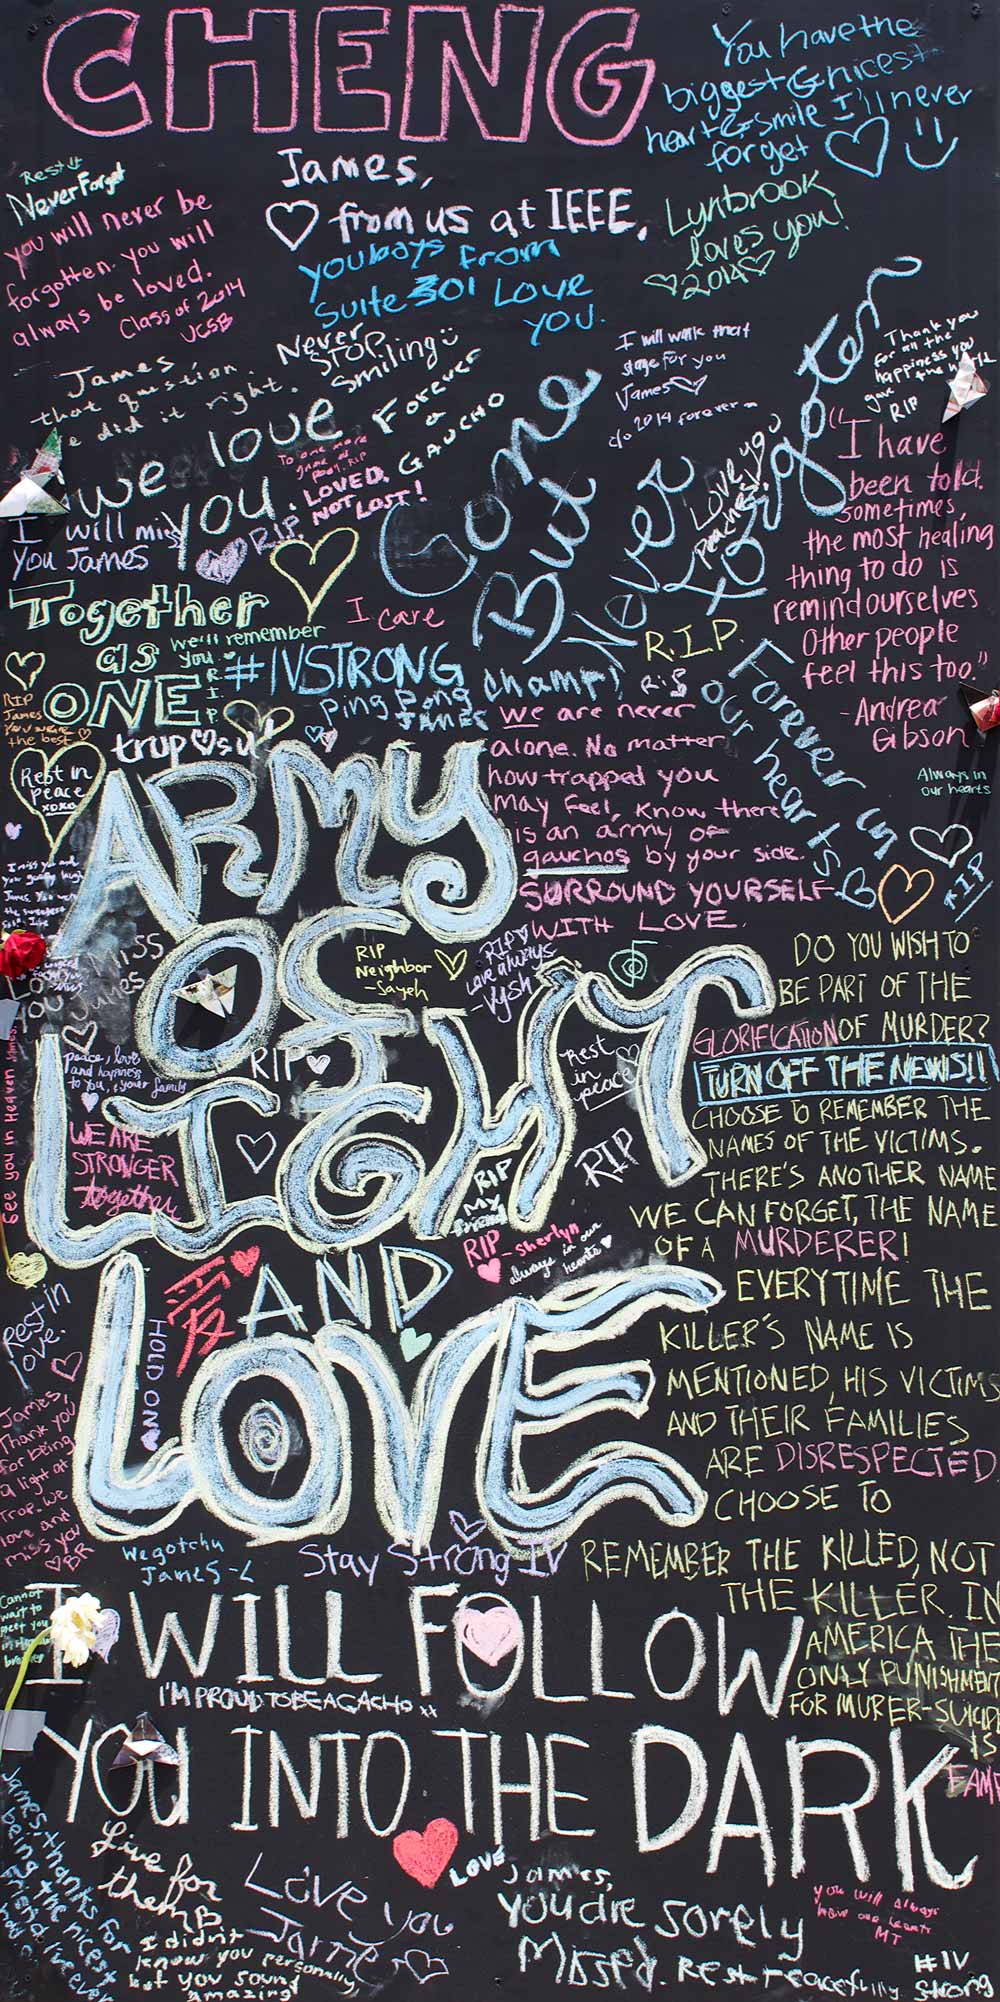 CHENG
You have the
biggest & nicest
heart & smile I'll never
forget
Rest
Never Forget
you will never be
forgotten. you will
always be loved.
Class of 2014
UCSB
James,
♡ from us at IEEE.
you boys from
suite 301 Love
you.
Lynbrook
loves you!
♡2014♡
James
that question.
he did it right.
Never
STOP
Smiling
Forever
a
GAUCHO
we love
you.
To one more
game of
pong. RIP
LOVED,
NOT LOST!
R.I.P.
I will miss
you James
I will walk that
stage for you
James♡
c/o 2014 forever
Gone
But
Never
Forgotten
Love you
Peaches!
Thank you
for all the
happiness you
gave the world
RIP
"I have
been told.
sometimes,
the most healing
thing to do is
remind ourselves
Other people
feel this too."
-Andrea
Gibson
Together
as
ONE
we'll remember
you.
R.I.P.
I care
#IVSTRONG
Ping Pong champ!
James
R.I.P.
RIP
James
You were
the best♡
trup♡su
Rest in
peace
xoxo
we are never
alone. No matter
how trapped you
may feel, know there
is an army of
gauchos by your side.
SURROUND YOURSELF
WITH LOVE.
Forever in
our hearts
Always in
our hearts
RIP
ARMY
OF
LIGHT
AND
LOVE
RIP
Neighbor
-Sayeh
RIP♡
Love always
-Vysh
miss
you James
RIP♡
Rest
in
peace
RIP
peace, love
and happiness
to you, & your family
WE ARE
STRONGER
together
RIP
MY
friend
RIP-Sherlyn
always in our
hearts♥
See you in Heaven James.
愛
HOLD ON
Rest in
love.
DO YOU WISH TO
BE PART OF THE
GLORIFICATION OF MURDER?
TURN OFF THE NEWS!!
CHOOSE TO REMEMBER THE
NAMES OF THE VICTIMS.
THERE'S ANOTHER NAME
WE CAN FORGET, THE NAME
OF A MURDERER!
EVERYTIME THE
KILLER'S NAME IS
MENTIONED, HIS VICTIMS
AND THEIR FAMILIES
ARE DISRESPECTED
CHOOSE TO
REMEMBER THE KILLED, NOT
THE KILLER. IN
AMERICA THE
ONLY PUNISHMENT
FOR MURER-SUICID
IS
FAM
James,
Thank you
for being
a light at
Trop. We
love and
miss you
♡BR
We gotchu
James -L
Stay Strong IV
Cannot
wait to
meet you
brother
I WILL FOLLOW
I'M PROUD TO BE A GACHO xx
YOU INTO THE DARK
James, thanks for
being the nicest
friend
Live for
them
I didn't
know you personally,
but you sound
amazing
Love you
Jame
LOVE
James,
you are sorely
Missed. Rest Peacefully.
you will always
have our hearts
MT
#IV
Strong